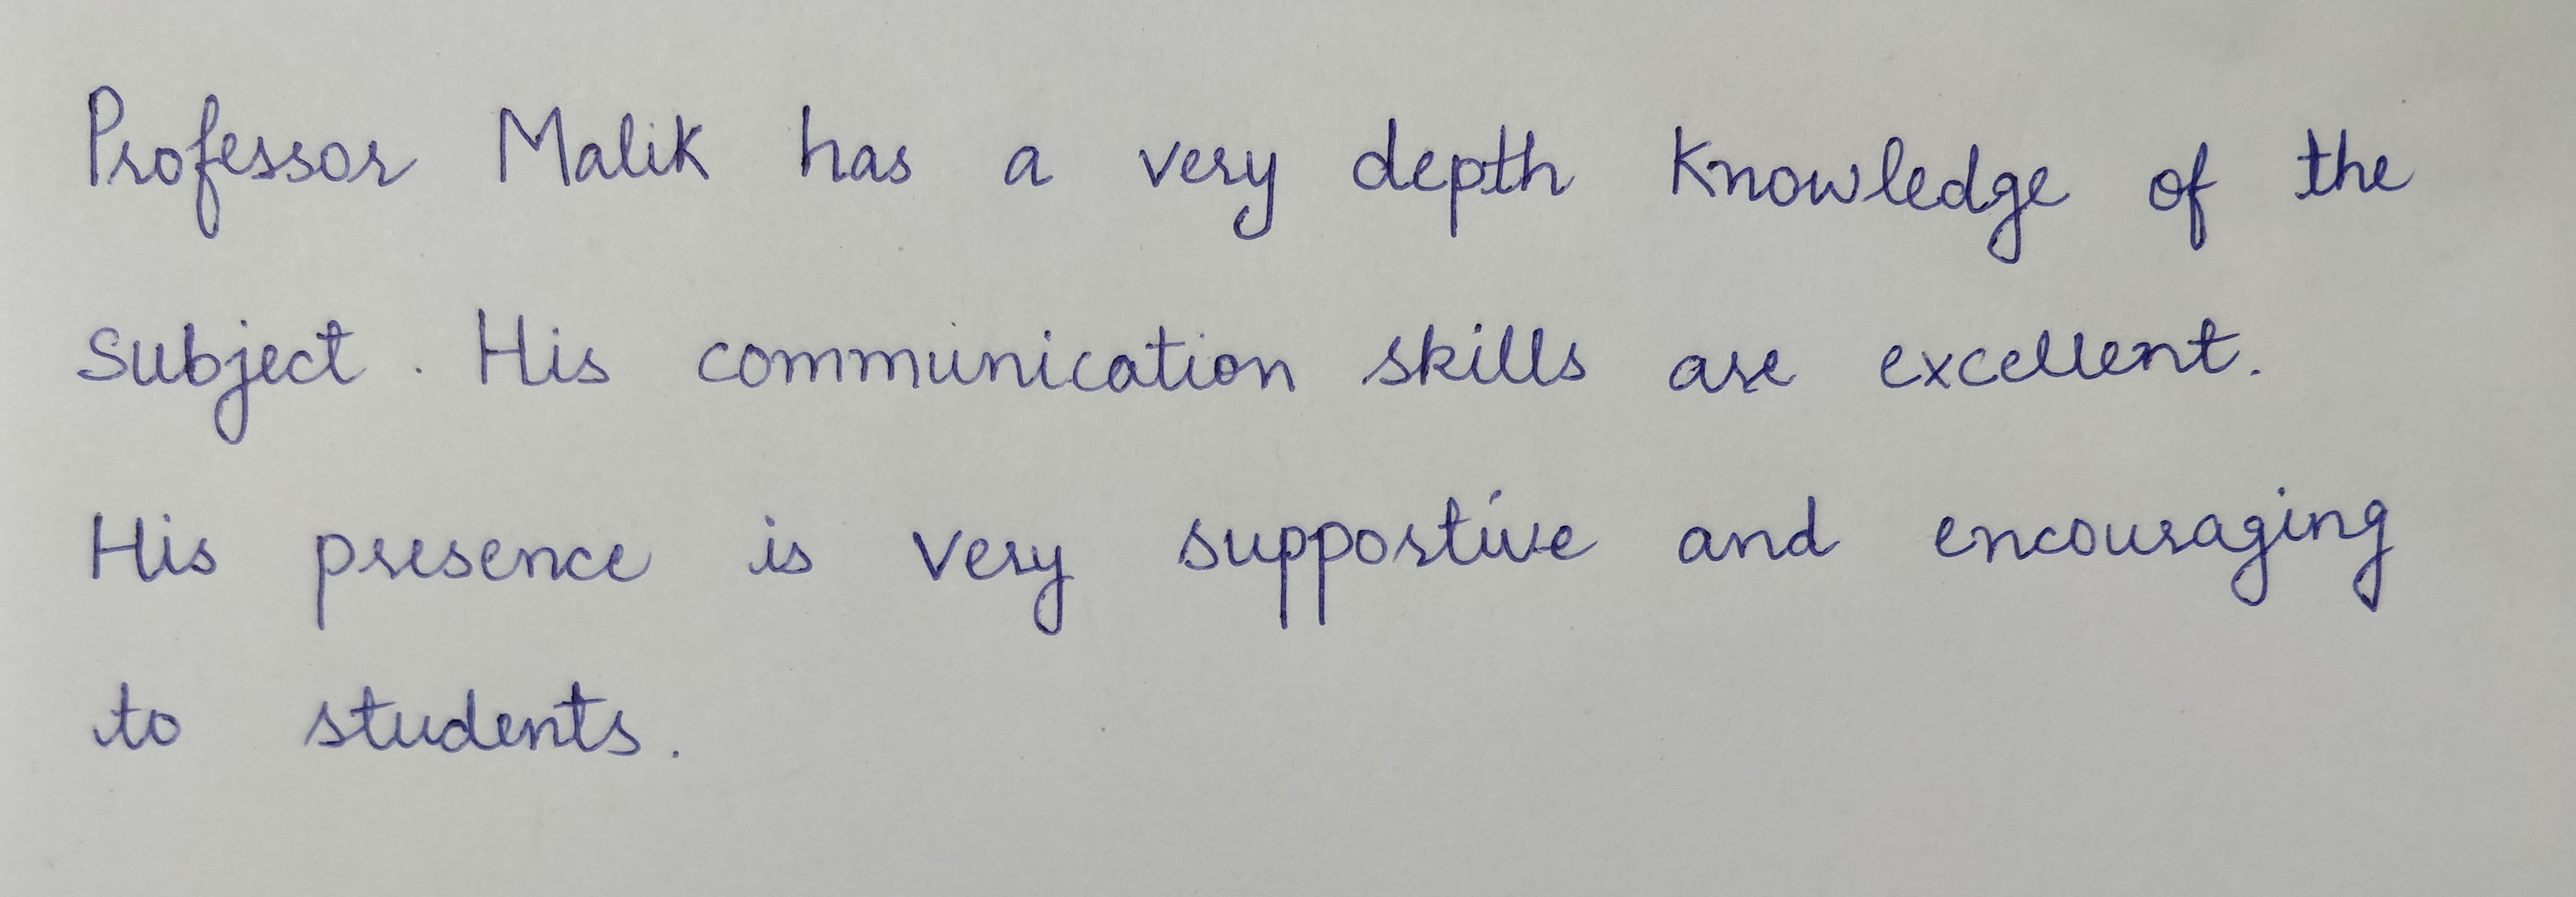 Professor Malik has a very depth knowledge of the
subject. His communication skills are excellent.
His presence is very supportive and encouraging
to students.